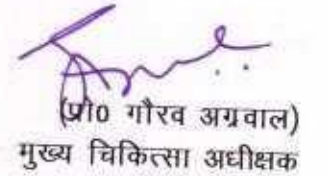 (प्रो0 गौरव अग्रवाल)
मुख्य चिकित्सा अधीक्षक